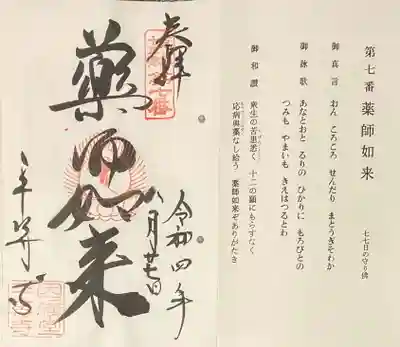 第七番 薬師如来 七七日の守り佛
御真言 おん ころころ せんだり まとうぎそわか
御詠歌 あなとおと るりの ひかりに もろびとの
つみも やまいも きえはつるとわ
御和讃 衆生の苦患悉く 十二の願にもらすなく
応病與薬なし給う 薬師如来ぞありがたき
奉拝
薬師如来
令和四年
八月廿七日